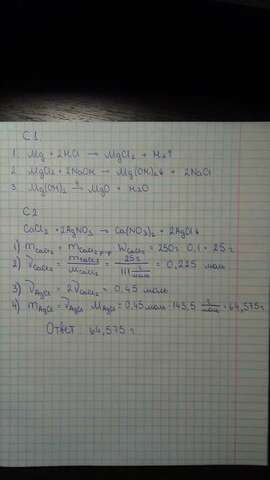 C1.
1. Mg + 2HCl → MgCl2 + H2↑
2. MgCl2 + 2NaOH → Mg(OH)2↓ + 2NaCl
3. Mg(OH)2 → MgO + H2O
C2.
CaCl2 + 2AgNO3 → Ca(NO3)2 + 2AgCl↓
1) mCaCl2 = mCaCl2 р-р · WCaCl2 = 250г · 0,1 = 25г
2) νCaCl2 = mCaCl2 / MCaCl2 = 25г / 111 г/моль = 0,225 моль
3) νAgCl = 2νCaCl2 = 0,45 моль
4) mAgCl = νAgCl · MAgCl = 0,45моль · 143,5 г/моль = 64,575г
Ответ: 64,575 г